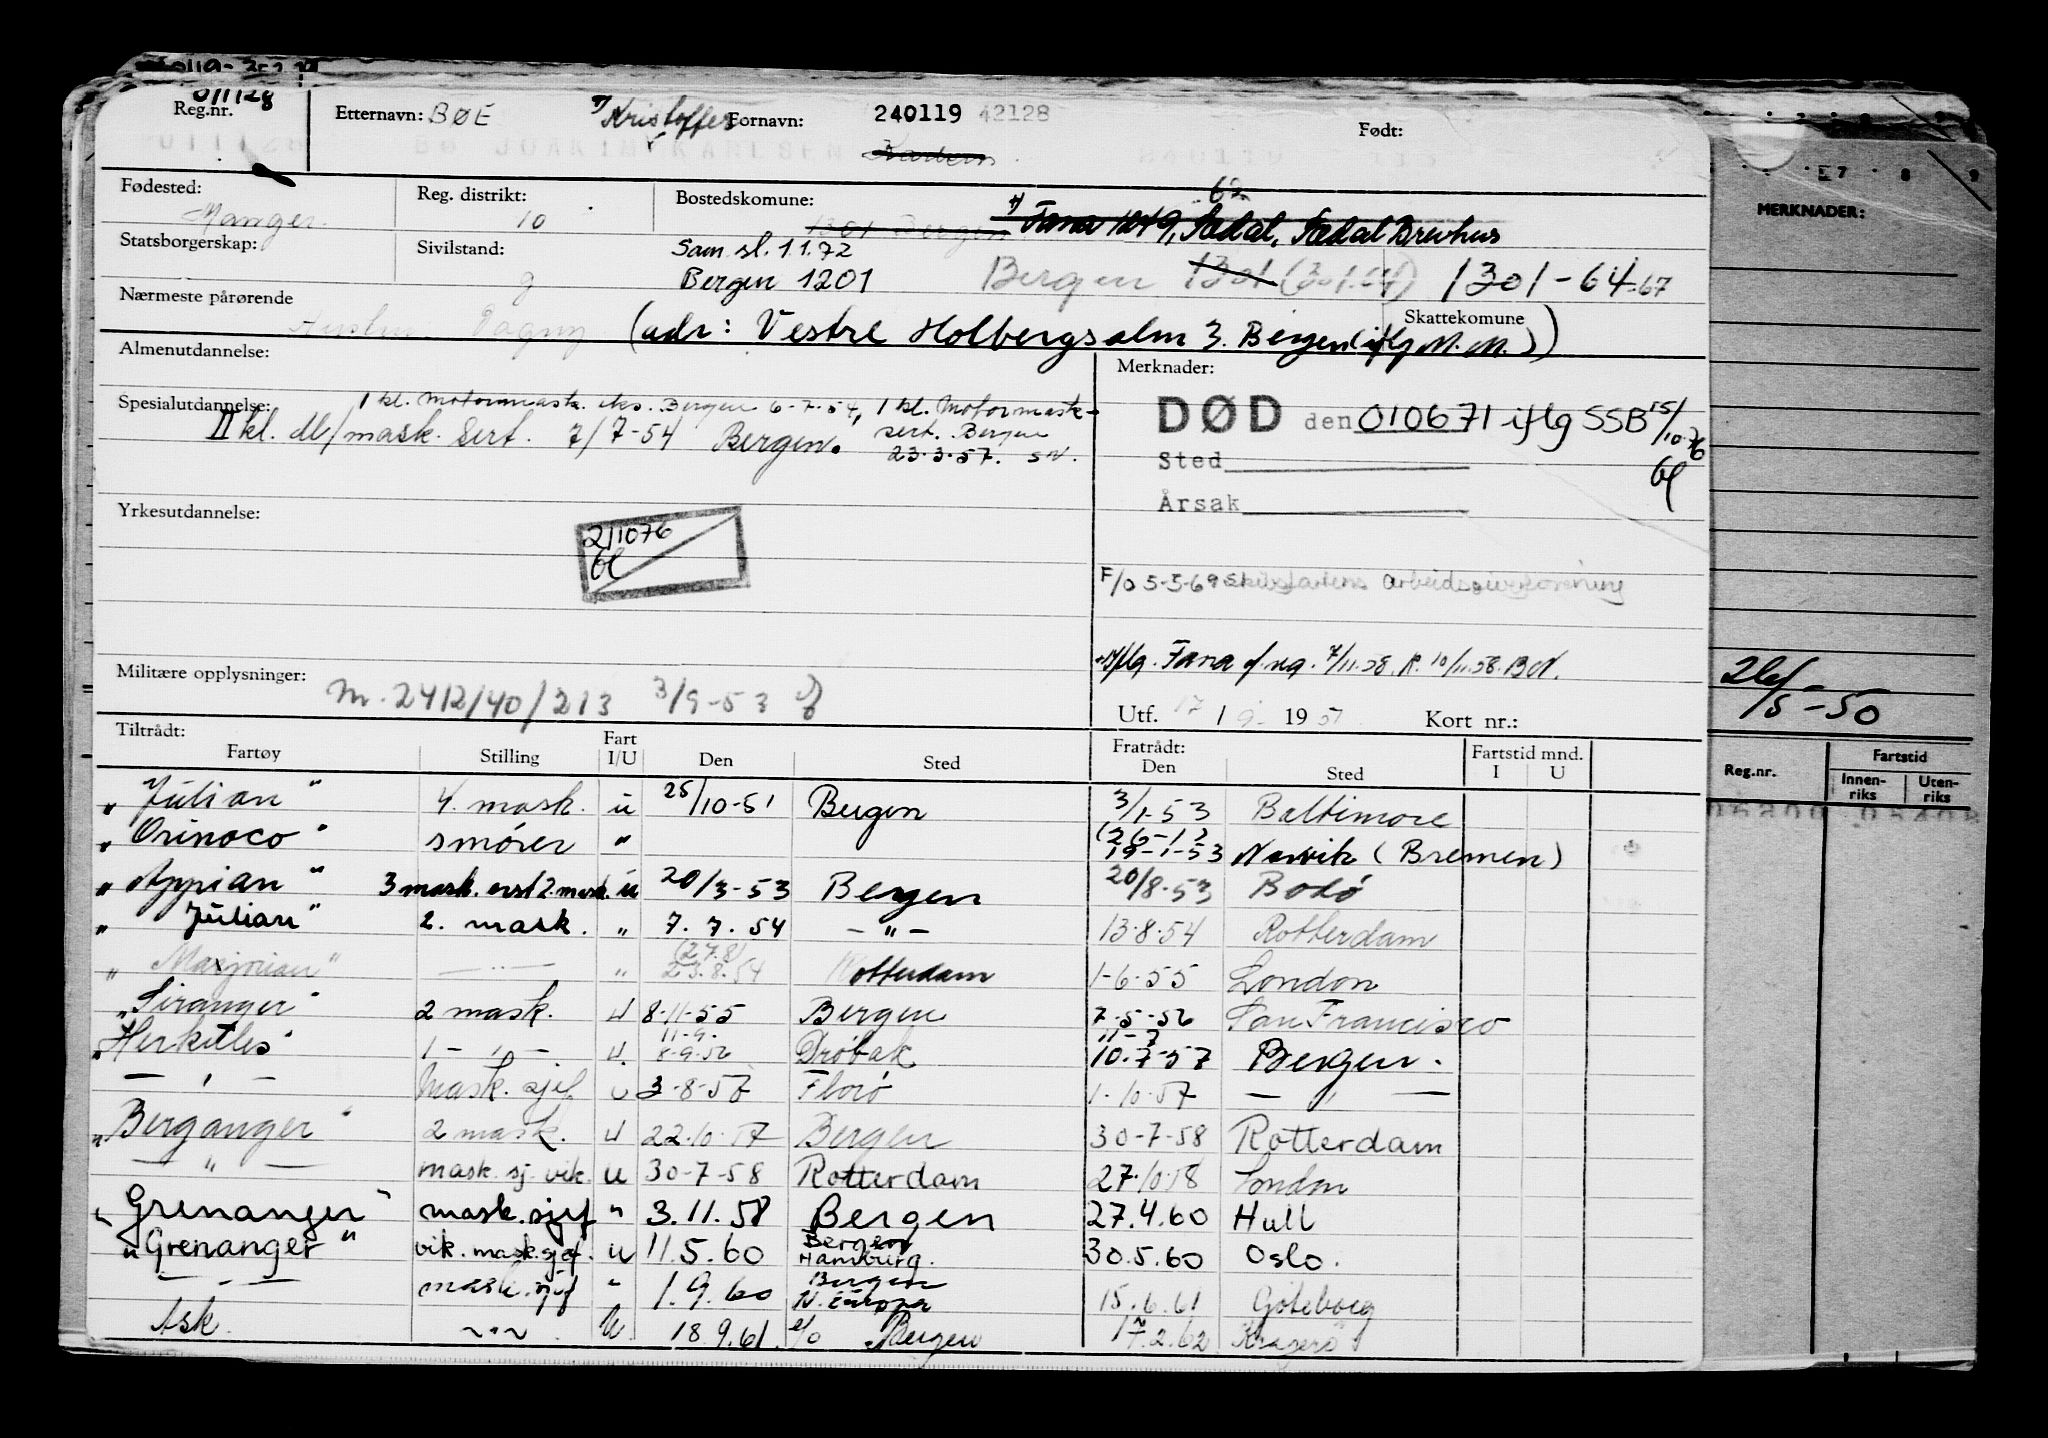 011128
Reg.nr. Etternavn: BØE Kristoffer Fornavn: 240119 42128 Født:
Fødested: Manger Reg. distrikt: 10 Bostedskommune: 1301 Bergen Fana 1249, Sædal, Sædal Brevhus
Statsborgerskap: Sivilstand: g Sam.sl. 1.1.72
Bergen 1201 Bergen 1301 (301.64) 1301-64.67
Nærmeste pårørende
Dagny (adr: Vestre Holbergsalm 3. Bergen (iflg M.M.)) Skattekomune
Almenutdannelse: Merknader:
Spesialutdannelse: 1 kl. Motormask. eks. Bergen 6-7-54, 1 kl. Motormask-
II kl. dl/mask. Sert. 7/7-54 Bergen. sert. Bergen
23.3.57. SN.
DØD den 010671 iflg SSB 15/10.76
Gl
Sted
Årsak
Yrkesutdannelse:
211076
Gl
F/O 5-5-69 Skibsfartens Arbeidsgiverforening
Iflg. Fana f.reg. 7/11.58. R. 10/11.58. BN.
Militære opplysninger: M. 2412/40/213 3/9-53
Utf. 17/9 1951 Kort nr.:
Tiltrådt: Fratrådt: Fartstid mnd.
Fartøy Stilling Fart I/U Den Sted Den Sted I U
"Julian" 4. mask. u 25/10-51 Bergen 3/1-53 Baltimore
"Orinoco" smører " (26-12 19-1-53 Narvik (Bremen)
"Appian" 3 mask. erst 2. mask. u 20/3-53 Bergen 20/8-53 Bodø
"Julian" 2. mask. " 7.7.54 -"- 13.8.54 Rotterdam
"Marjorian" -"- " (27.8) 23.8.54 Rotterdam 1-6-55 London
"Siranger" 2 mask. U 8-11-55 Bergen 7-5-56 San Francisco
"Herkules" 1 -"- U. 11-9- 8-9-56 Drøbak 11-7 10.7-57 Bergen.
-"- Mask. sjef. U 3-8-57 Florø 1-10-57 -"-
"Berganger" 2 mask. U 22.10.57 Bergen 30-7-58 Rotterdam
-"- mask. sj. vik. U 30-7-58 Rotterdam 27.10.58 London
"Grenanger" mask.sjef " 3.11.58 Bergen 27.4.60 Hull
"Grenanger" vik. mask.sjef. U 11.5.60 Bergen Hamburg. 30.5.60 Oslo.
-"- mask.sjef " 1.9.60 Bergen N. Europa 15.6.61 Göteborg
Ask. -"- U 18.9.61. e/o Bergen 17.2.62 Kragerø
7 8 9
MERKNADER:
26/5-50
Reg.nr. Fartstid
Innenriks Utenriks